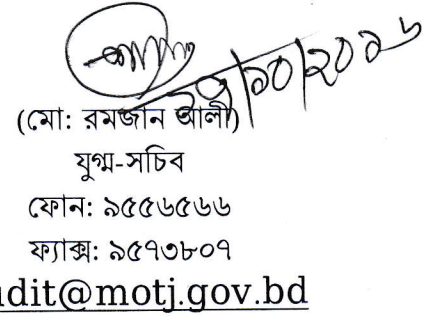 (মো: রমজান আলী)
যুগ্ম-সচিব
ফোন: ৯৫৫৬৫৬৬
ফ্যাক্স: ৯৫৭৩৮০৭
dit@motj.gov.bd